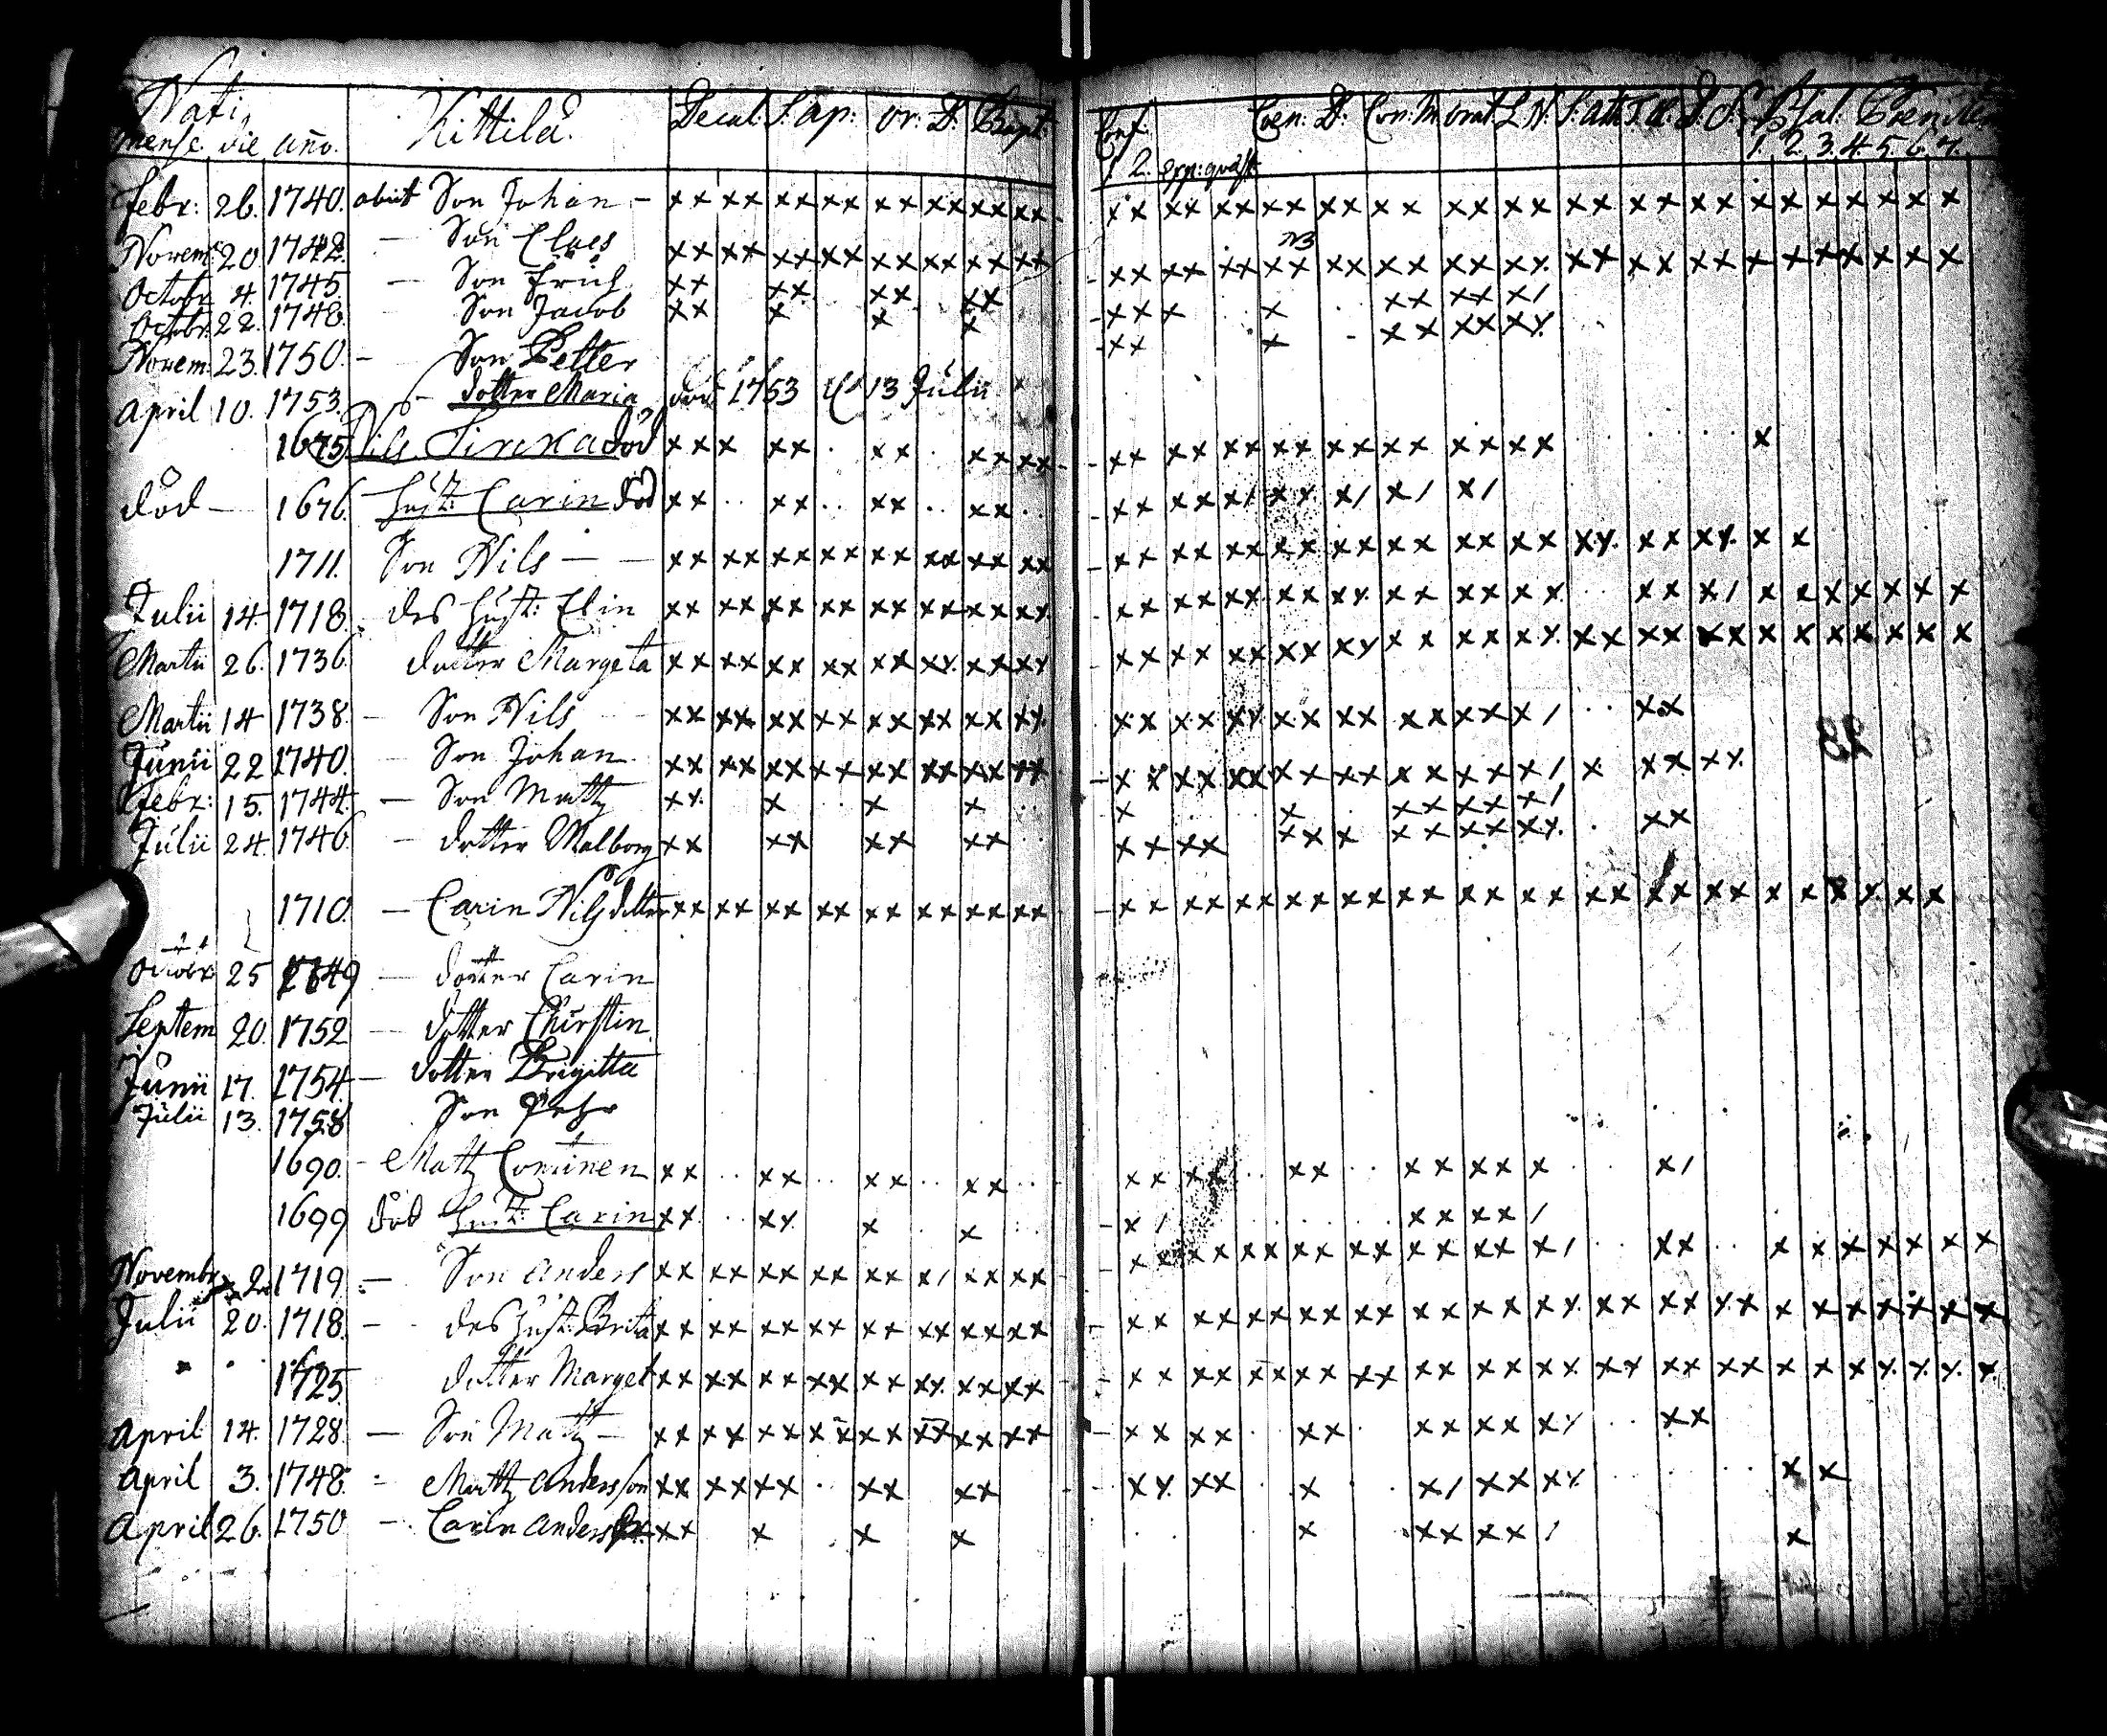 Nati
mense. die año. Kittilä. Decal: S. ap: or: D: Bapt:
Conf: Coen: D: Con: M: orat: L N: S. ath: T. H. D: O: Psal: Poeniten
1. 2. Spp: quæst: 1. 2. 3. 4. 5. 6. 7.
Febr: 26. 1740. abiit Son Johan -
Novem: 20 1742. - Son Claes
NB
Octobr 4. 1745 - Son Erich
Octobr. 22. 1748. Son Jacob
Novem: 23. 1750. - Son Petter
April 10. 1753. - dotter Maria död 1753 13 Julii
1675. Nils död
död - 1676. hust: Carin död
1711. Son Nils - -
Julii 14. 1718. des hust: Elin
Martii 26. 1736. dotter Margeta
Martii 14 1738. - Son Nils
Junii 22 1740. - Son Johan
Febr: 15. 1744. - Son Matz
Julii 24. 1746. - dotter Walborg
1710. - Carin Nilsdotter
Octobr 25 1749 - dotter Carin
Septem 20. 1752 - dotter Chirstin
Junii 17. 1754 - dotter Brigitta
Julii 13. 1758 Son Pehr
1690. - Matz
1699 död hust: Carin
Novembr 2. 1719. - Son Anders
Julii 20. 1718. - des hust: Brita
1725. dotter Marget
April 14. 1728. - Son Matz -
April 3. 1748. - Matz Andersson
April 26. 1750 - Carin Anders